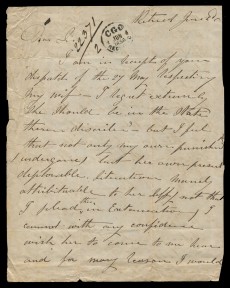 Retreat June 8
Dear Sir
22371
CGO
JUN
I am in receipt of your
dispatch of the 27 May respecting
my wife. I regret extremely
She should be in the State
there described - but I feel
that not only my own
but her own present
deplorable situation mainly
attributable to her
I plead in Extenuation, I
cannot with any confidence
wish her to come to me here
and for many reasons I would